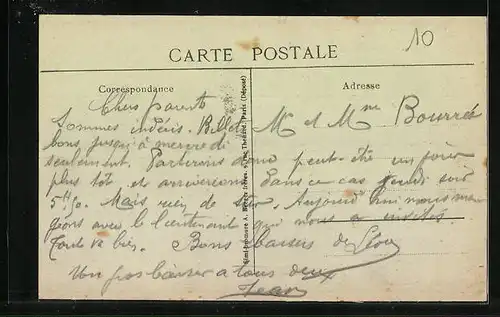 10
CARTE POSTALE
Correspondance
Adresse
Chers parents
Sommes indécis. Billets
bons jusqu'à mercredi
seulement. Partirons donc peut-être un jour
plus tôt et arriverons dans ce cas jeudi soir
5h. Mais rien de sûr. Aujourd'hui nous man
geons avec le lieutenant qui nous a invités
Bons baisers de Léon
Un gros baiser à tous deux
Jean
Mr et Mme Bourrée
Paris (Déposé)